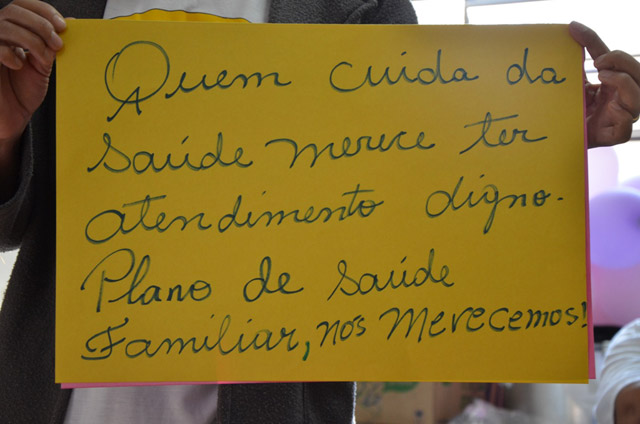 Quem cuida da
saúde merece ter
atendimento digno.
Plano de saúde
Familiar, nós Merecemos!